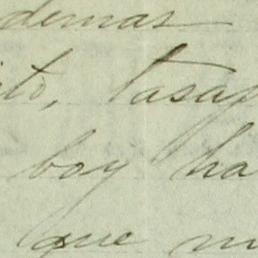 demas
ito, tasap
boy ha
que m